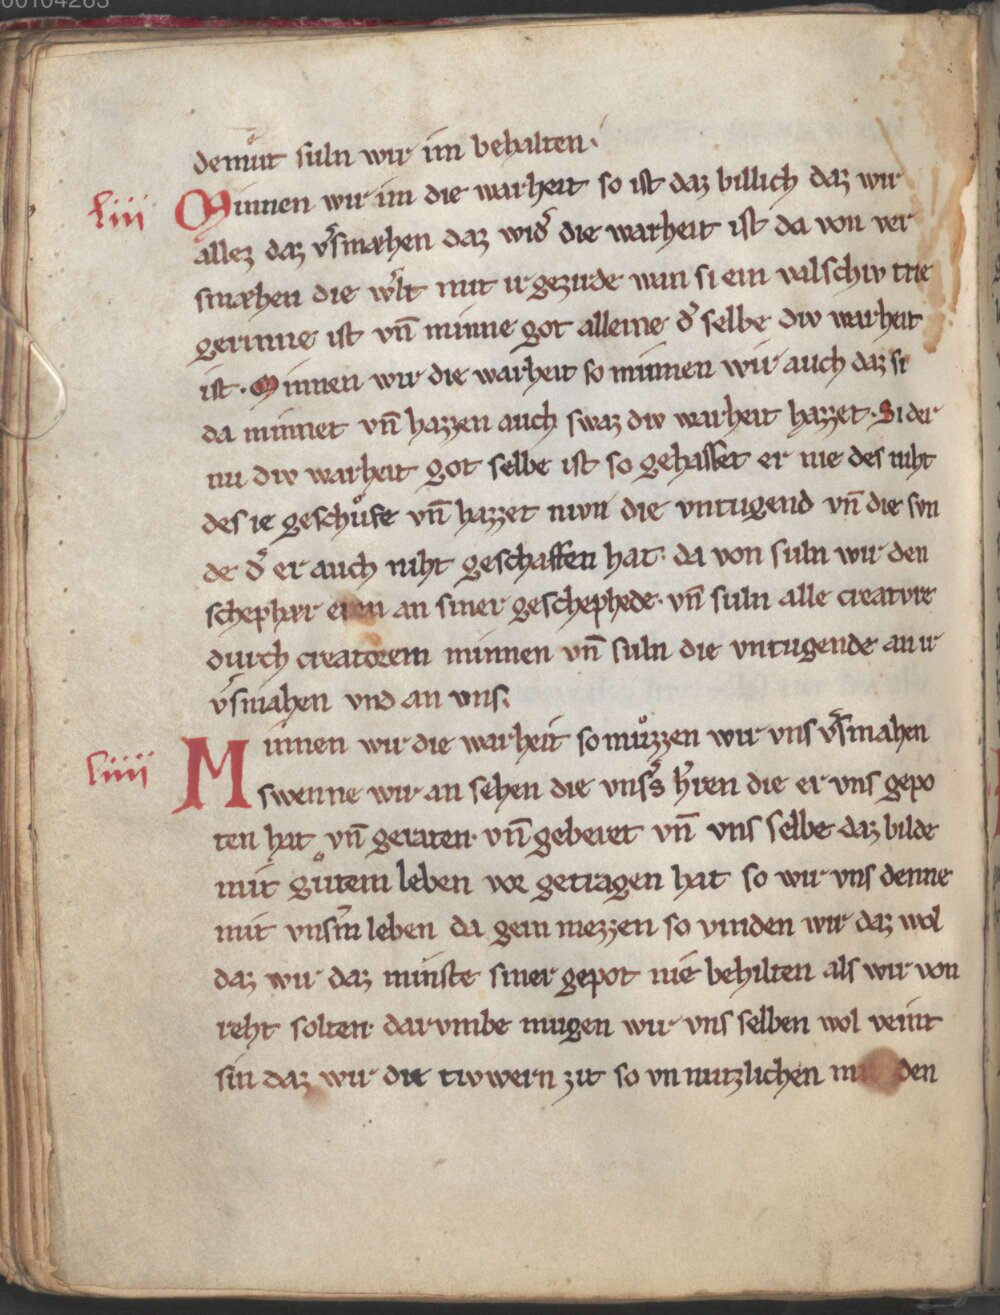 00104263
demuͦt suln wir im behalten.
liii Minnen wir im die warheit so ist daz billich daz wir
allez daz v̾smæhen daz wid̾ die warheit ist da von ver
smæhen die w̾lt mit ir gezirde wan si ein valschiv trie
gerinne ist vn̄ minne got alleine d̾ selbe div warheit
ist. Minnen wir die warheit so minnen wir auch daz si
da minnet vn̄ hazzen auch swaz div warheit hazzet. Sider
nu div warheit got selbe ist so gehasset er nie des niht
des ie geschuͦfe vn̄ hazzet nivn die vntugend vn̄ die svn
de d̾ er auch niht geschaffen hat. da von suln wir den
schephær eren an siner geschephede. vn̄ suln alle creatvre
durch creatorem minnen vn̄ suln die vntugende an ir
v̾smahen vnd an vns.
liiii Minnen wir die warheit so muͦzzen wir vns v̾smahen
swenne wir an sehen die vns̾s h̾ren die er vns gepo
ten hat vn̄ geraten. vn̄ gebetet vn̄ vns selbe daz bilde
mit guͦtem leben vor getragen hat so wir vns denne
mit vns̾m leben da gein mezzen so vinden wir daz wol
daz wir daz minste siner gepot nie behilten als wir von
reht solten. darvmbe mugen wir vns selben wol veint
sin daz wir die tivwern zit so vnnutzlichen den